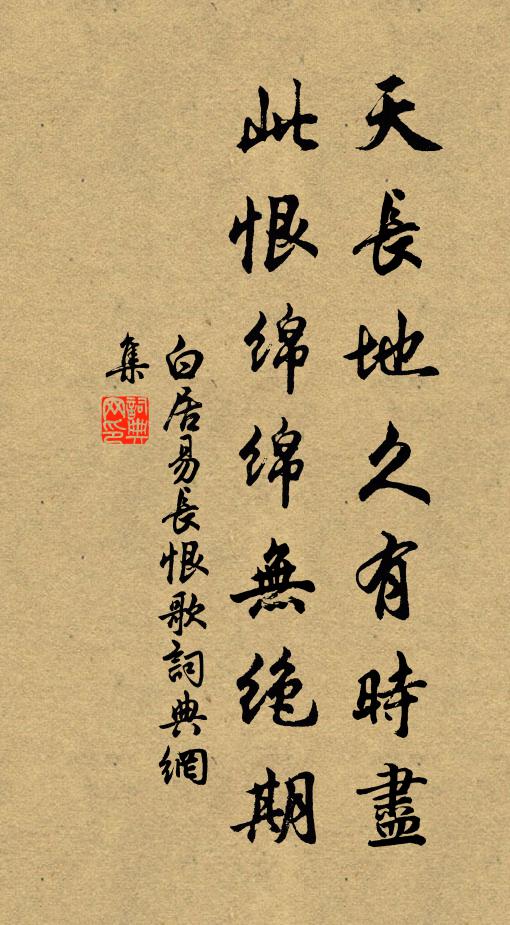 天長地久有時盡
此恨绵绵無绝期
白居易長恨歌詞典網
集
詞典网印